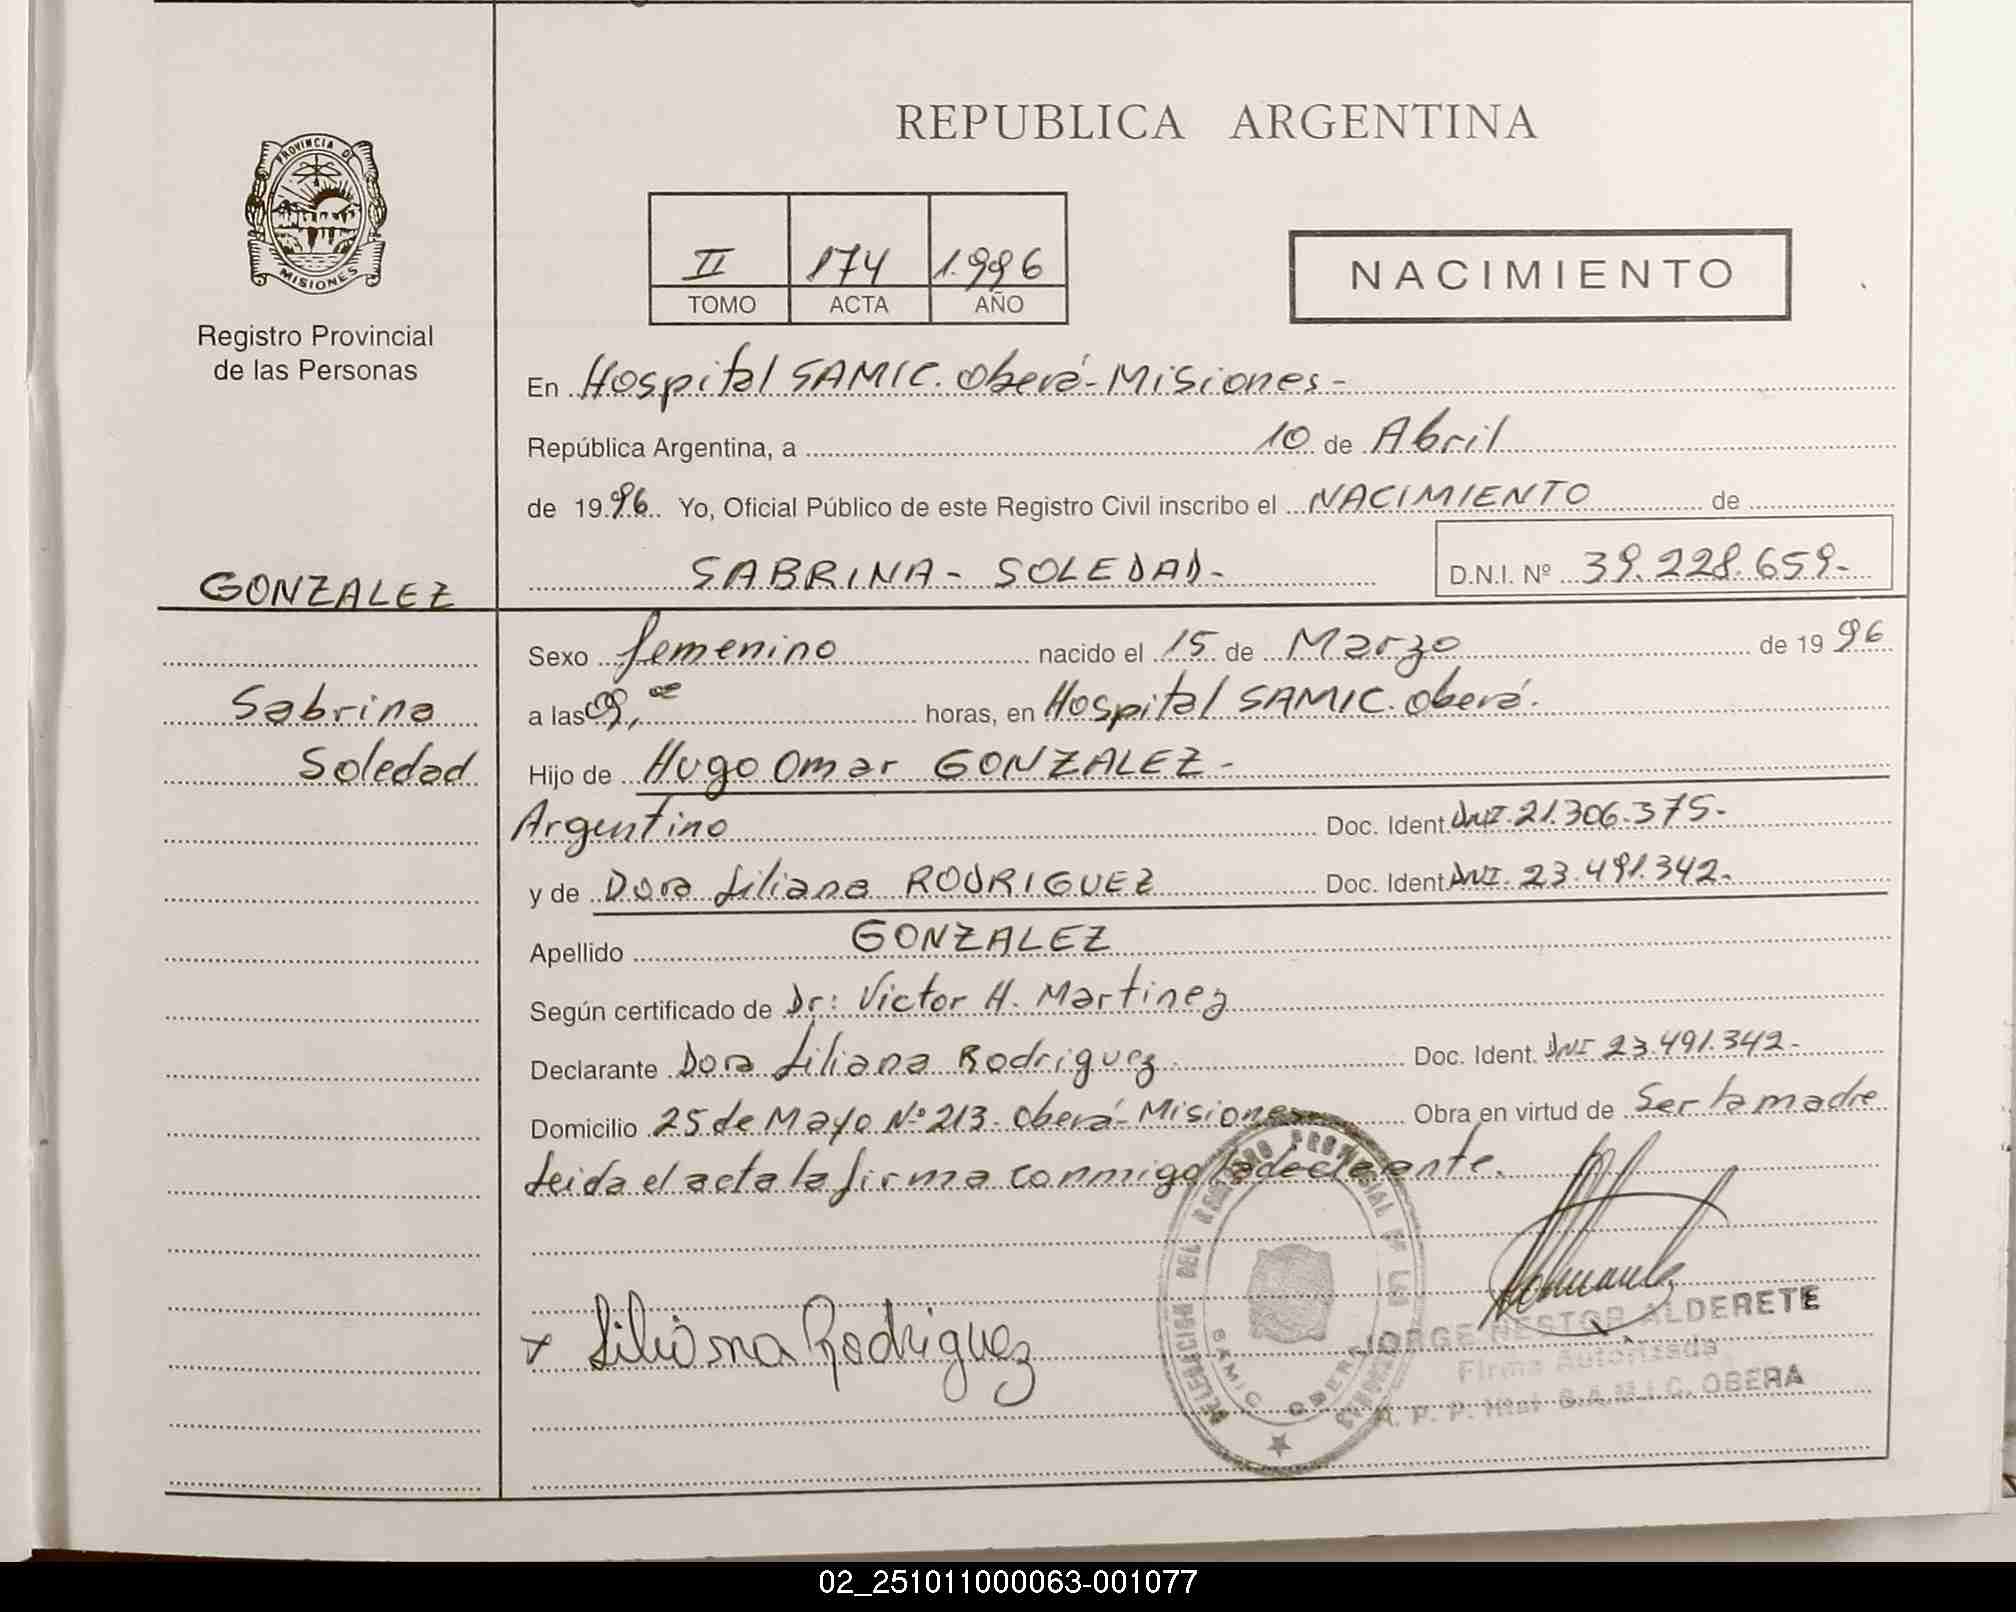 REPUBLICA ARGENTINA
PROVINCIA DE
MISIONES
Registro Provincial
de las Personas
II 174 1.996
TOMO ACTA AÑO
NACIMIENTO
En Hospital SAMIC. Oberá-Misiones-
República Argentina, a 10 de Abril
de 1996. Yo, Oficial Público de este Registro Civil inscribo el NACIMIENTO de
SABRINA- SOLEDAD- D.N.I. Nº 39.228.659-
GONZALEZ
Sabrina
Soledad
Sexo femenino nacido el 15 de Marzo de 1996
a las 09, horas, en Hospital SAMIC. Oberá.
Hijo de Hugo Omar GONZALEZ-
Argentino Doc. Ident. DNI. 21.306.375-
y de Dora Liliana RODRIGUEZ Doc. Ident. DNI. 23.491.342-
Apellido GONZALEZ
Según certificado de Dr: Victor H. Martinez
Declarante Dora Liliana Rodriguez. Doc. Ident. DNI 23.491.342-
Domicilio 25 de Mayo Nº 213- Oberá-Misiones Obra en virtud de Ser la madre
Leida el acta la firma conmigo la declarante.
DELEGACION DEL REGISTRO PROVINCIAL DE LAS PERSONAS
SAMIC OBERA
+ Liliana Rodriguez
JORGE NESTOR ALDERETE
Firma Autorizada
R. P. P. Htal S.A.M.I.C. OBERA
02_251011000063-001077